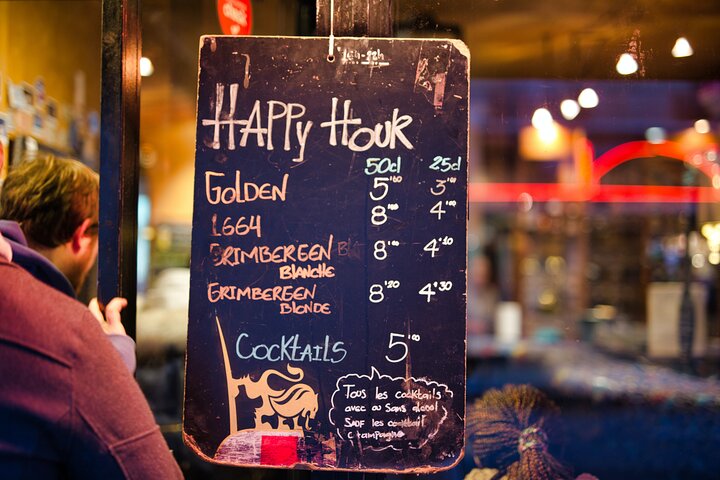 HAPPY HOUR
50cl 25cl
GOLDEN 5'00 3'00
1664 8'00 4'00
GRIMBERGEN
BLANCHE 8'00 4'10
GRIMBERGEN
BLONDE 8'20 4'30
COCKTAILS 5'00
TOUS les cocktails
avec ou SANS alcool
SAUF les cocktail
CHAMPAGNE